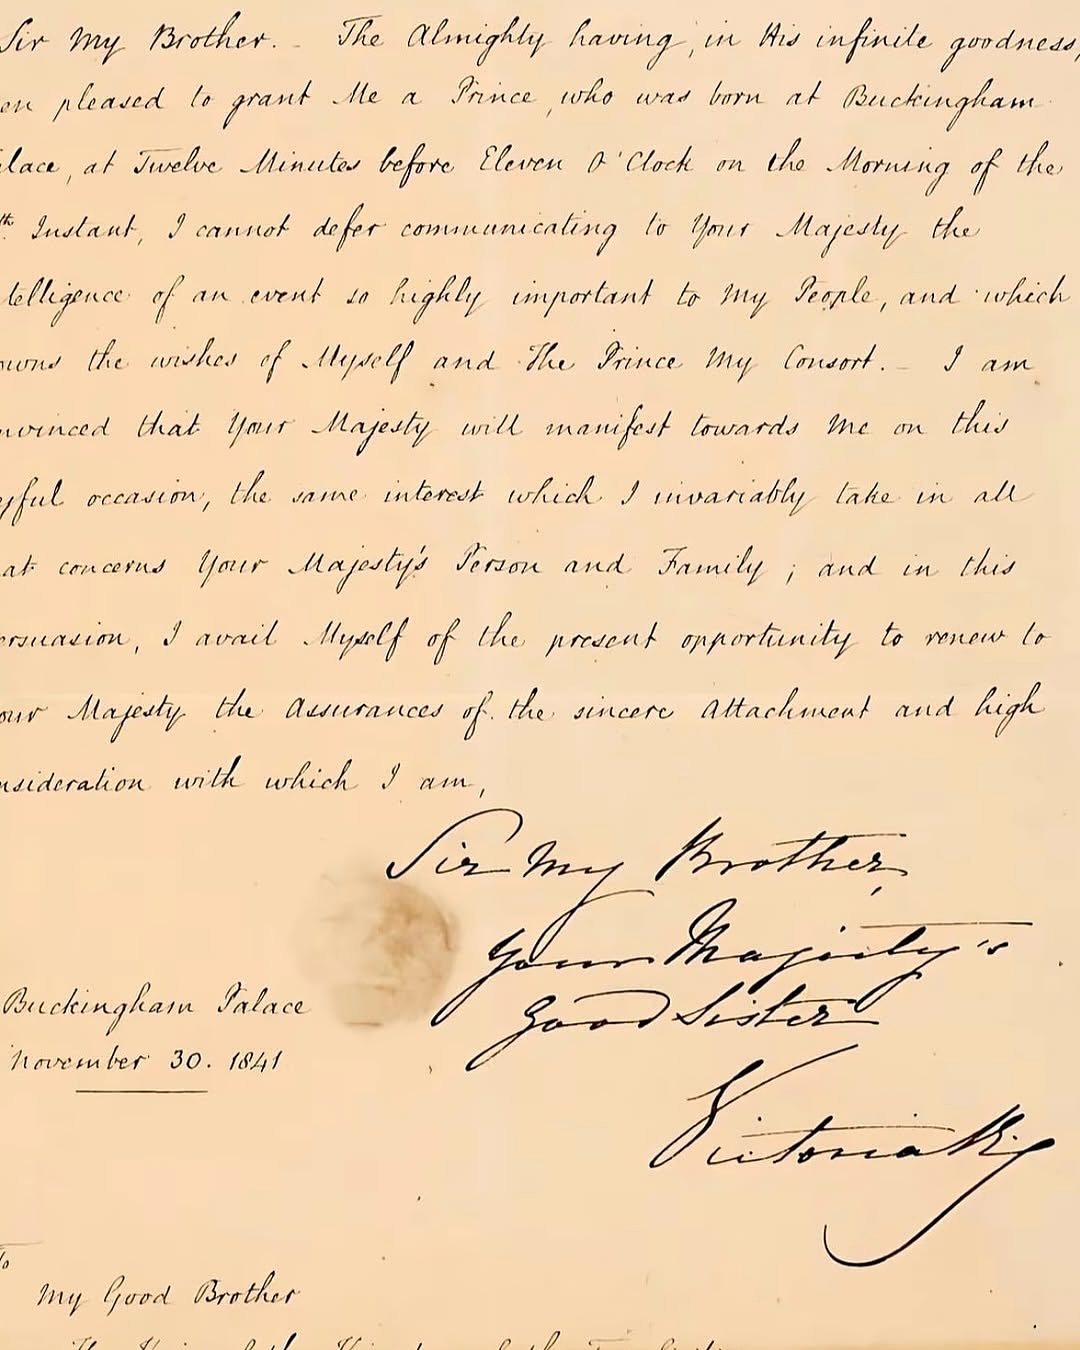 Sir My Brother. - The Almighty having, in His infinite goodness,
en pleased to grant Me a Prince, who was born at Buckingham
lace, at Twelve Minutes before Eleven O'Clock on the Morning of the
th Instant, I cannot defer communicating to Your Majesty the
telligence of an event so highly important to My People, and which
owns the wishes of Myself and The Prince My Consort. - I am
nvinced that Your Majesty will manifest towards Me on this
yful occasion, the same interest which I invariably take in all
at concerns Your Majesty's Person and Family; and in this
ersuasion, I avail Myself of the present opportunity to renew to
our Majesty the Assurances of the sincere Attachment and high
nsideration with which I am,
Sir My Brother,
Your Majesty's
Good Sister
Victoria R.
Buckingham Palace
November 30. 1841
To
My Good Brother